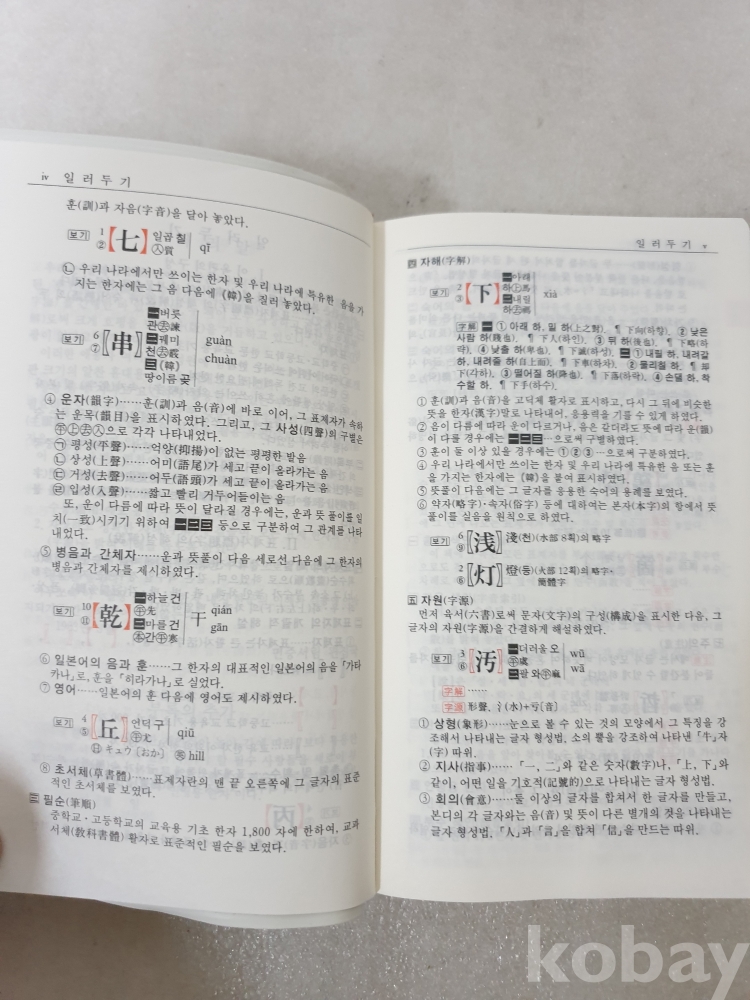 iv 일 러 두 기
훈(訓)과 자음(字音)을 달아 놓았다.
보기 1 ② 【七】 일곱 칠 ㊅質 qī
㉡ 우리 나라에서만 쓰이는 한자 및 우리 나라에 특유한 음을 가
지는 한자에는 그 음 다음에 (韓)을 질러 놓았다.
보기 6 ⑦ 〖串〗 一버릇
관㊤諫 guàn
二꿰미
천㊤霰 chuàn
三(韓)
땅이름 곶
④ 운자(韻字)……훈(訓)과 음(音)에 바로 이어, 그 표제자가 속하
는 운목(韻目)을 표시하였다. 그리고, 그 사성(四聲)의 구별은
㊥上去入으로 각각 나타내었다.
㉠ 평성(平聲)……억양(抑揚)이 없는 평평한 발음
㉡ 상성(上聲)……어미(語尾)가 세고 끝이 올라가는 음
㉢ 거성(去聲)……어두(語頭)가 세고 끝이 올라가는 음
㉣ 입성(入聲)……짧고 빨리 거두어들이는 음
또, 운이 다름에 따라 뜻이 달라질 경우에는, 운과 뜻 풀이를 일
치(一致)시키기 위하여 一二三 등으로 구분하여 그 관계를 나타
내었다.
⑤ 병음과 간체자……운과 뜻풀이 다음 세로선 다음에 그 한자의
병음과 간체자를 제시하였다.
보기 10 ⑪ 【乾】 一하늘 건 平先
二마를 건
本간平寒 干 qián
gān
⑥ 일본어의 음과 훈……그 한자의 대표적인 일본어의 음을 「가타
카나」로, 훈을 「히라가나」로 실었다.
⑦ 영어……일본어의 훈 다음에 영어도 제시하였다.
보기 4 ⑤ 〖丘〗 언덕 구
平尤 qiū
日 キュウ〔おか〕 英 hill
⑧ 초서체(草書體)……표제자란의 맨 끝 오른쪽에 그 글자의 표준
적인 초서체를 보였다.
三 필순(筆順)
중학교·고등학교의 교육용 기초 한자 1,800 자에 한하여, 교과
서체(敎科書體) 활자로 표준적인 필순을 보였다.
일 러 두 기 v
四 자해(字解)
보기 2 ③ 【下】 一아래
하上馬
二내릴
하去禡 xià
字解 一 ① 아래 하, 밑 하(上之對). ¶ 下向(하향). ② 낮은
사람 하(賤也). ¶ 下人(하인). ③ 뒤 하(後也). ¶ 下略(하
략). ④ 낮출 하(卑也). ¶ 下誠(하성). 二 ① 내릴 하, 내려갈
하, 내려줄 하(自上而). ¶ 下車(하차). ② 물리칠 하. ¶ 却
下(각하). ③ 떨어질 하(降也). ¶ 下落(하락). ④ 손댈 하, 착
수할 하. ¶ 下手(하수).
① 훈(訓)과 음(音)을 고딕체 활자로 표시하고, 다시 그 뒤에 비슷한
뜻을 한자(漢字)말로 나타내어, 응용력을 기를 수 있게 하였다.
② 음이 다름에 따라 운이 다르거나, 음은 같더라도 뜻에 따라 운(韻)
이 다를 경우에는 一二三…으로써 구별하였다.
③ 훈이 둘 이상 있을 경우에는 ①②③…으로써 구분하였다.
④ 우리 나라에서만 쓰이는 한자 및 우리 나라에 특유한 음 또는 훈
을 가지는 한자에는 (韓)을 붙여 표시하였다.
⑤ 뜻풀이 다음에는 그 글자를 응용한 숙어의 용례를 보였다.
⑥ 약자(略字)·속자(俗字) 등에 대하여는 본자(本字)의 항에서 뜻
풀이를 실음을 원칙으로 하였다.
보기 6 ⑨ 〖浅〗 淺(천)(水部 8획)의 略字
2 ⑥ 〖灯〗 燈(등)(火部 12획)의 略字·
簡體字
五 자원(字源)
먼저 육서(六書)로써 문자(文字)의 구성(構成)을 표시한 다음, 그
글자의 자원(字源)을 간결하게 해설하였다.
보기 3 ⑥ 〖汚〗 一더러울 오
平虞 wū
二팔 와平麻 wā
字解 ……
字源 形聲. 氵(水)+亏〔音〕
① 상형(象形)……눈으로 볼 수 있는 것의 모양에서 그 특징을 강
조해서 나타내는 글자 형성법. 소의 뿔을 강조하여 나타낸 「牛」자
(字) 따위.
② 지사(指事)……「一, 二」와 같은 숫자(數字)나, 「上, 下」와
같이, 어떤 일을 기호적(記號的)으로 나타내는 글자 형성법.
③ 회의(會意)……둘 이상의 글자를 합쳐서 한 글자를 만들고,
본디의 각 글자와는 음(音) 및 뜻이 다른 별개의 것을 나타내는
글자 형성법. 「人」과 「言」을 합쳐 「信」을 만드는 따위.
kobay